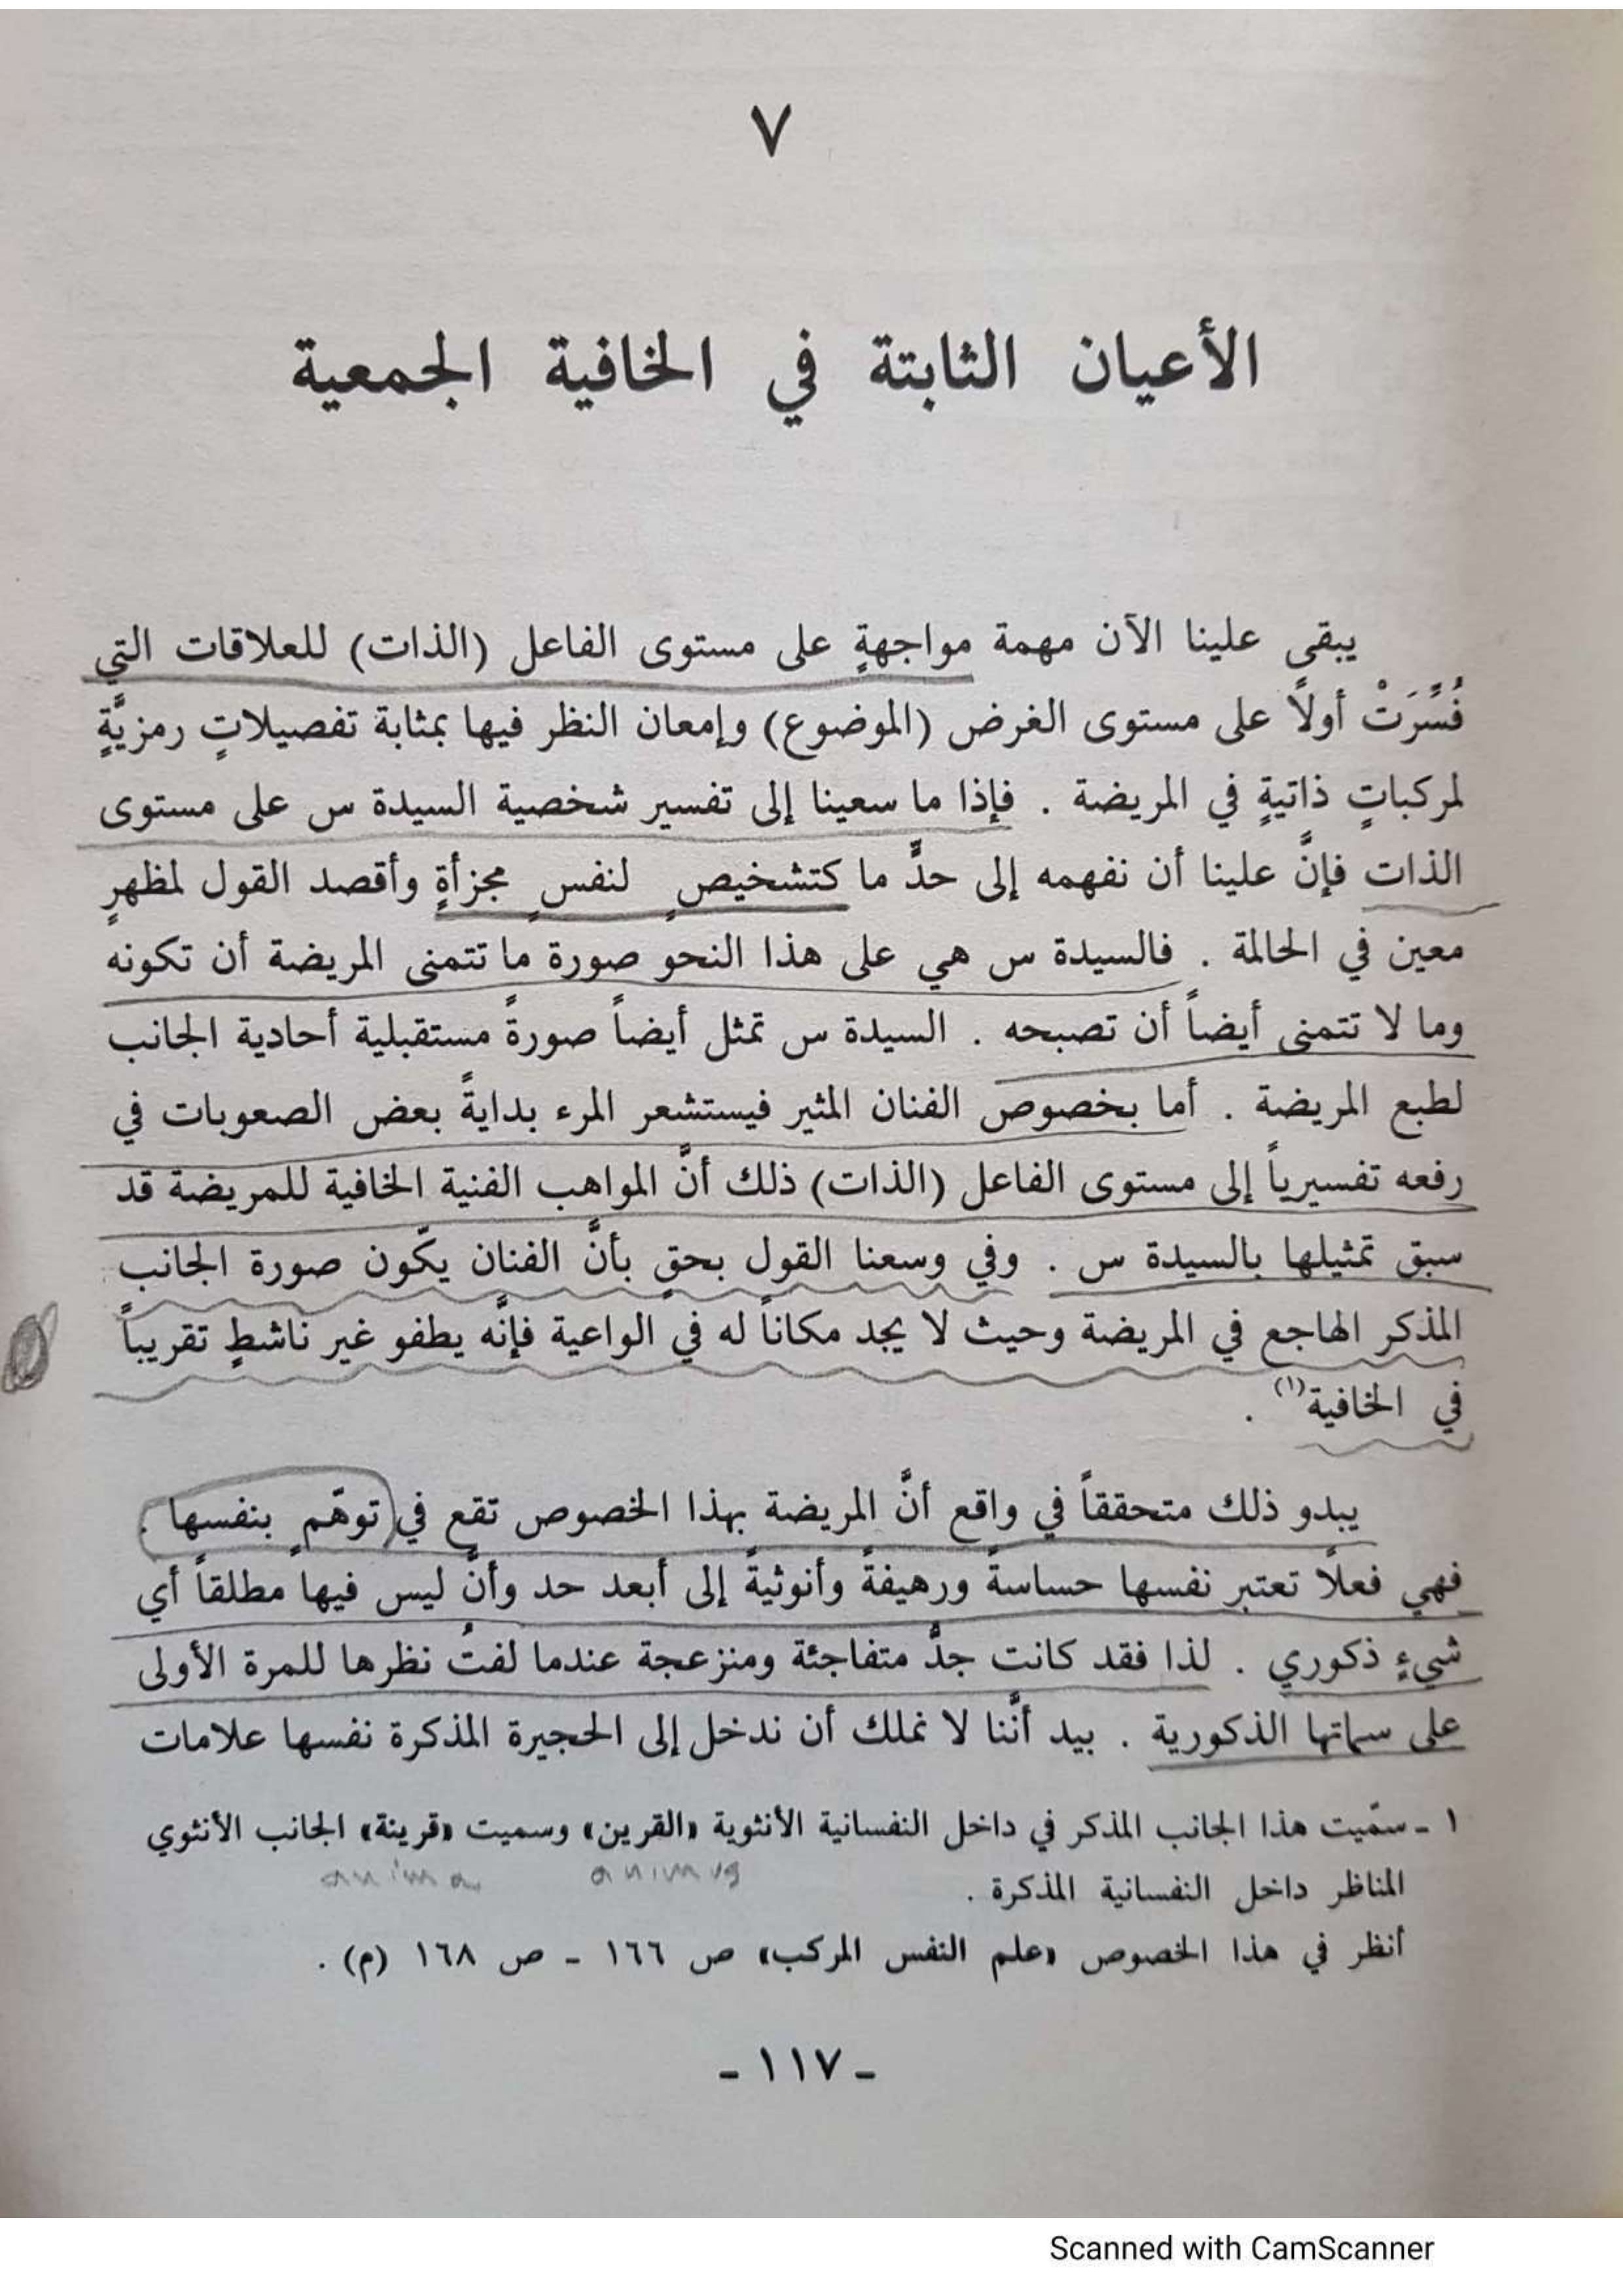 ٧
الأعيان الثابتة في الخافية الجمعية
يبقى علينا الآن مهمة مواجهةٍ على مستوى الفاعل (الذات) للعلاقات التي
فُسِّرَتْ أولاً على مستوى الغرض (الموضوع) وإمعان النظر فيها بمثابة تفصيلاتٍ رمزيَّةٍ
لمركباتٍ ذاتيةٍ في المريضة . فإذا ما سعينا إلى تفسير شخصية السيدة س على مستوى
الذات فإنَّ علينا أن نفهمه إلى حدٍّ ما كتشخيصٍ لنفسٍ مجزأةٍ وأقصد القول لمظهرٍ
معين في الحالمة . فالسيدة س هي على هذا النحو صورة ما تتمنى المريضة أن تكونه
وما لا تتمنى أيضاً أن تصبحه . السيدة س تمثل أيضاً صورةً مستقبلية أحادية الجانب
لطبع المريضة . أما بخصوص الفنان المثير فيستشعر المرء بدايةً بعض الصعوبات في
رفعه تفسيرياً إلى مستوى الفاعل (الذات) ذلك أنَّ المواهب الفنية الخافية للمريضة قد
سبق تمثيلها بالسيدة س . وفي وسعنا القول بحقٍ بأنَّ الفنان يكّون صورة الجانب
المذكر الهاجع في المريضة وحيث لا يجد مكاناً له في الواعية فإنَّه يطفو غير ناشطٍ تقريباً
في الخافية(١) .
يبدو ذلك متحققاً في واقع أنَّ المريضة بهذا الخصوص تقع في توهّمٍ بنفسها .
فهي فعلاً تعتبر نفسها حساسةً ورهيفةً وأنوثيةً إلى أبعد حد وأنَّ ليس فيها مطلقاً أي
شيءٍ ذكوري . لذا فقد كانت جدَّ متفاجئة ومنزعجة عندما لفتُ نظرها للمرة الأولى
على سماتها الذكورية . بيد أنَّنا لا نملك أن ندخل إلى الحجيرة المذكرة نفسها علامات
١ ـ سمّيت هذا الجانب المذكر في داخل النفسانية الأنثوية «القرين» وسميت «قرينة» الجانب الأنثوي
animus anima
المناظر داخل النفسانية المذكرة .
أنظر في هذا الخصوص «علم النفس المركب» ص ١٦٦ ـ ص ١٦٨ (م) .
ـ ١١٧ ـ
Scanned with CamScanner